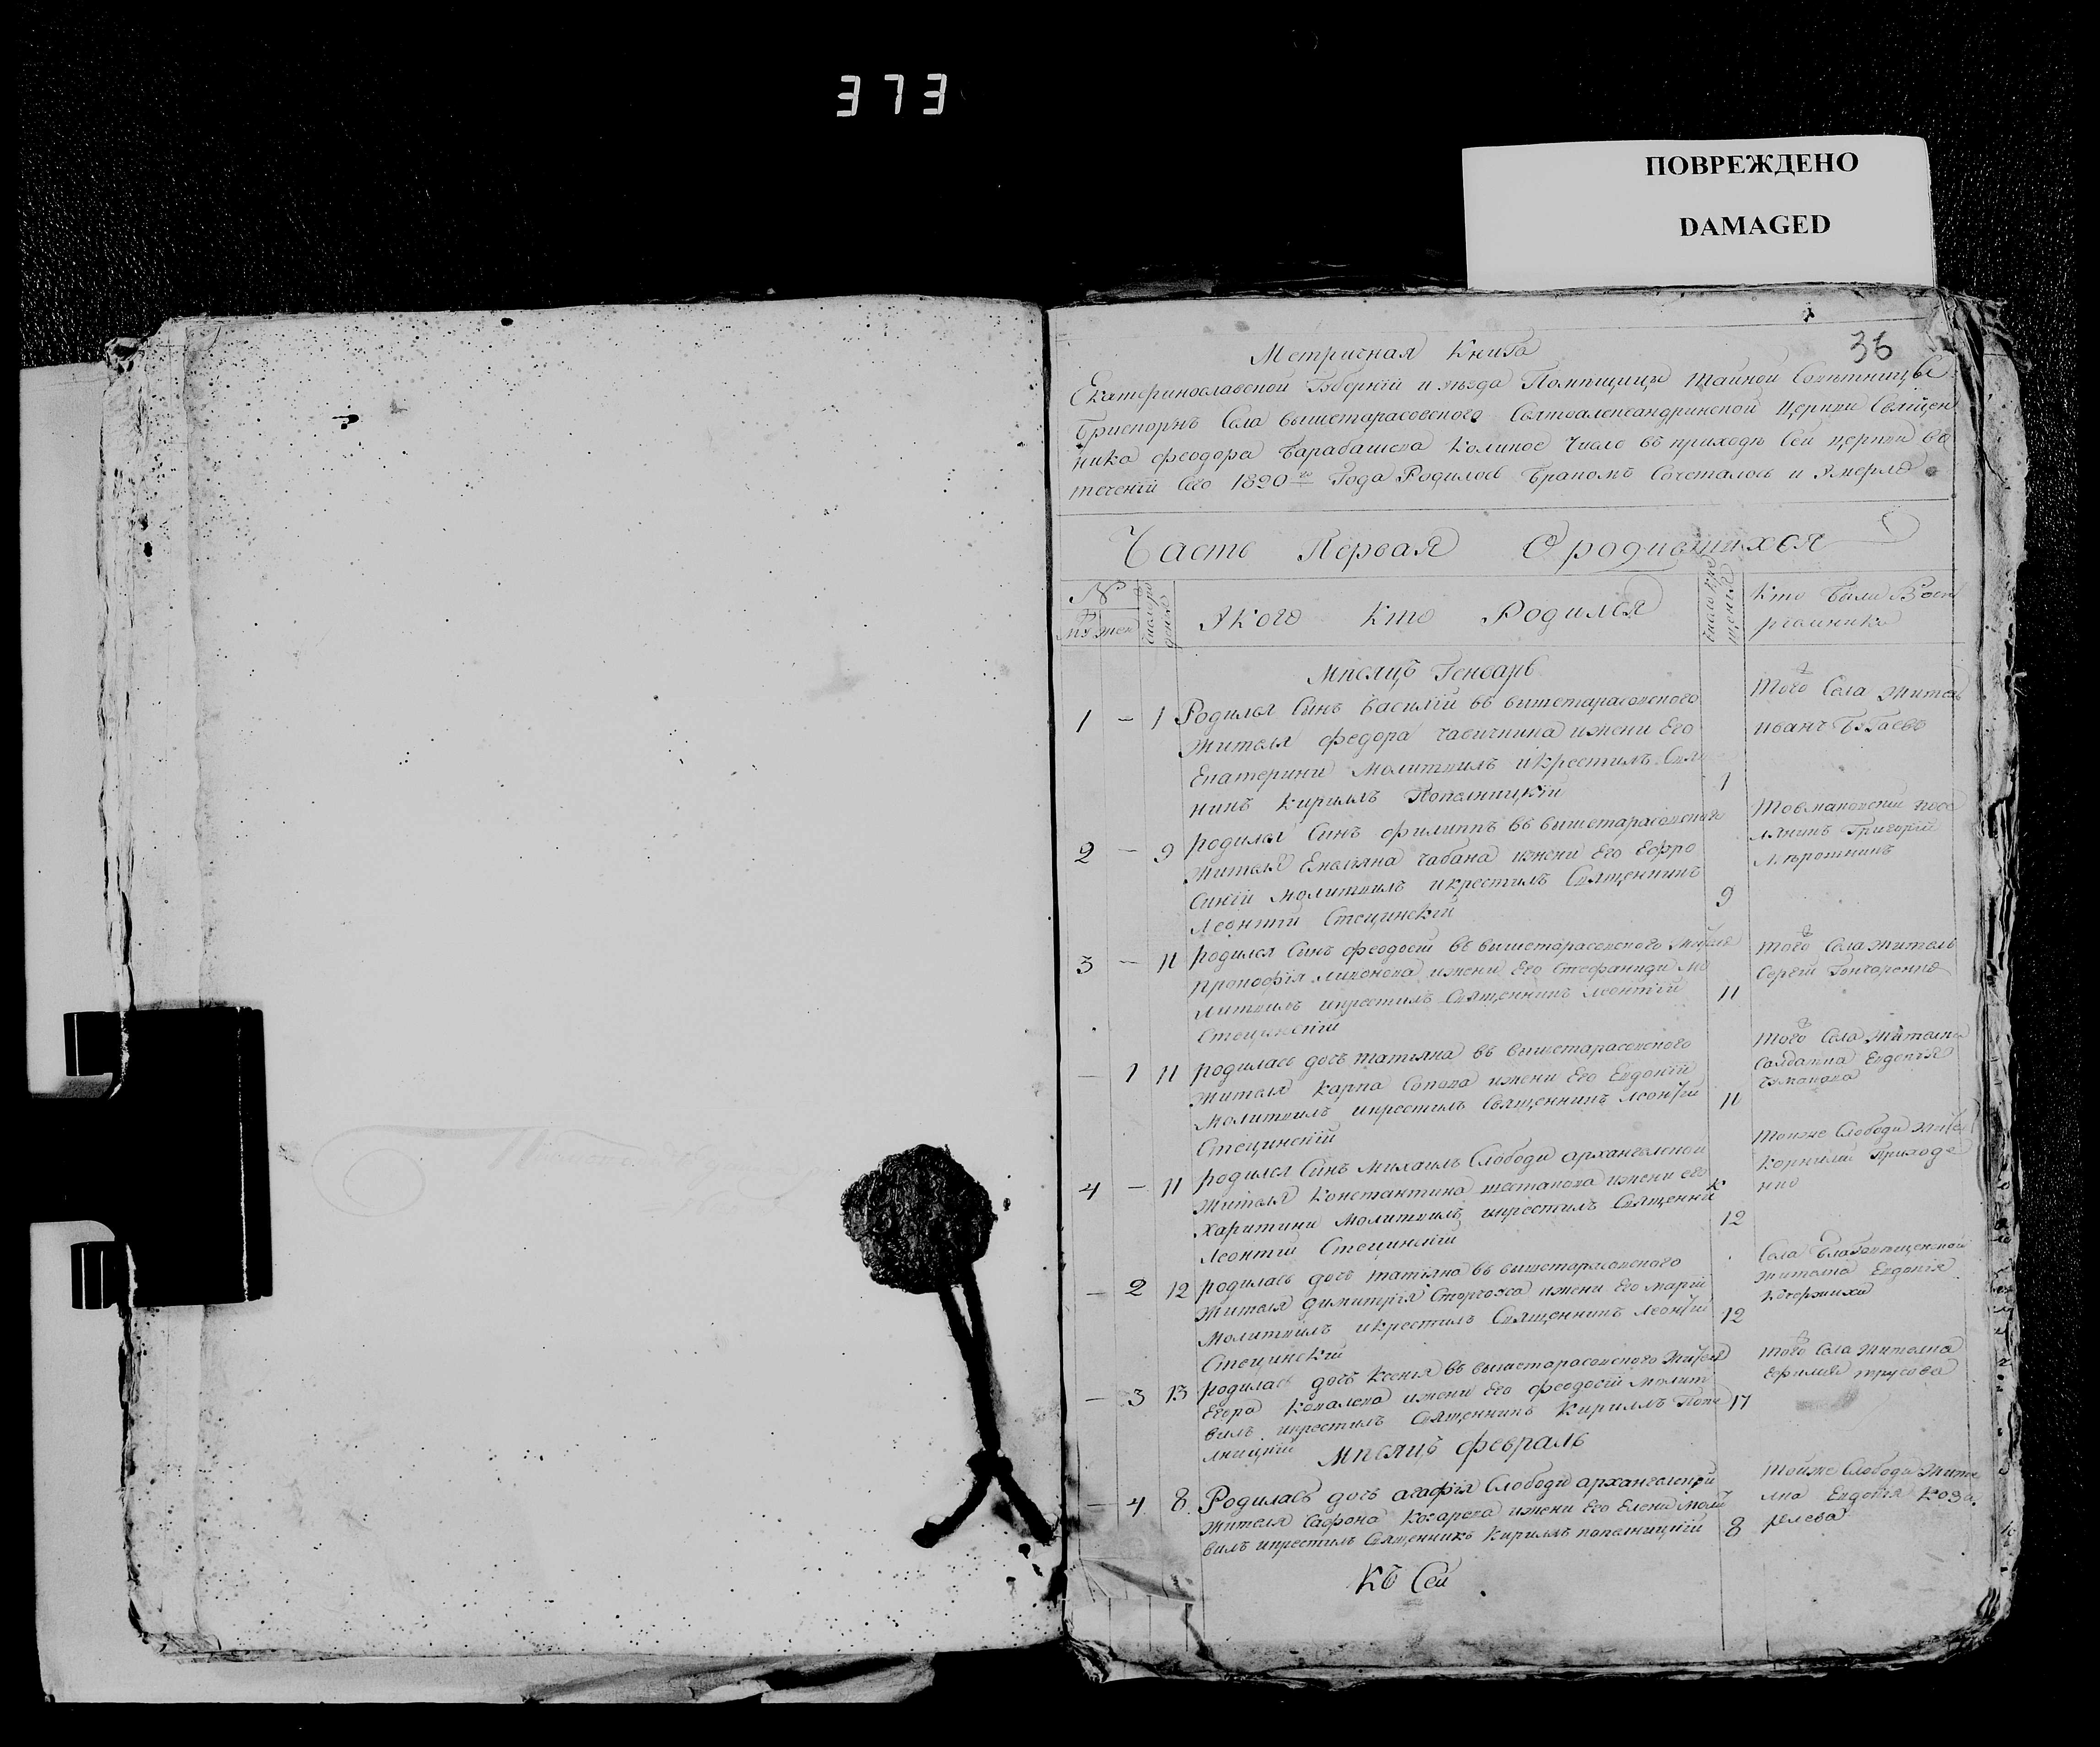 373
ПОВРЕЖДЕНО
DAMAGED
36
Метричная Книга
Екатеринославской Губерніи и уезда Помпщицы тайной Советницы
Села вышетарасовского Святоалександринской Церкви Священ
ника феодора Барабашева Коликое Число въ приходе Сей церкви въ
теченіи Сего 1820го Года Родилось Бракомъ Сочеталось и Умерло
Часть Первая О родившихся
№
муж жен
Число рож
денія
У кого кто Родился
число кре
щенія
Кто Були Восп
ріемники
Мпсяцъ Генварь
1 – 1 Родился Синъ Василій въ вишетарасовского
жителя федора Чавичкина и жени Его
Екатерини Молитвилъ и крестилъ Свя
никъ Кириллъ Попелницкій 1
Того Села житель
иванъ Бугаевъ
2 – 9 родился Синъ филиппъ въ вишетарасовского
жителя Емеляна чабана и жени Его Ефро
синіи молитвилъ и крестилъ Священникъ
Леонтій Стецинскій 9
Григорій
3 – 11 родился Синъ феодосій въ вышетарасовского жителя
прокофія лихонова и жени Его Стефаниди мо
литвилъ и крестилъ Священникъ леонтій
Стецинскій 11
того Села житель
Сергій Гончаренко
– 1 11 родилась дочь татіяна въ вишетарасовского
жителя Карпа Сопова и жени Его Евдокіи
Молитвилъ и крестилъ Священникъ леонтій
Стецинскій 11
того Села жителка
Салдатка Евдокія
4 – 11 родился Синъ Михаилъ Слободи архангелской
жителя Константина шестакова и жени его
Харитини Молитвилъ и крестилъ Священник
Леонтій Стецинскій 12
тойже Слободи жител
Корнилій Приходе
нко
– 2 12 родилась дочь татіяна въ вышетарасовского
жителя димитрія Сторожа и жени Его маріи
Молитвилъ и крестилъ Священникъ леонтій
Стецинскій 12
Села Благовещенской
жителка Евдокія
– 3 13 родилась дочь Ксенія въ вышетарасовского жителя
Егора Ковалева и жени Его феодосіи молит
вилъ и крестилъ Священникъ Кириллъ Попе
лницкій 17
того Села жителка
Ефимія трусова
Мпсяцъ февраль
– 4 8 Родилась дочь агафія Слободи архангелской
жителя Сафона Кухарева и жени Его Елени моли
вилъ и крестилъ Священникъ Кириллъ попелницкій 8
тойже Слободи жите
лка Евдокія Коза
релева
Къ Сей